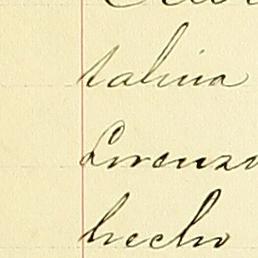 talina
Lorenzo
hecho